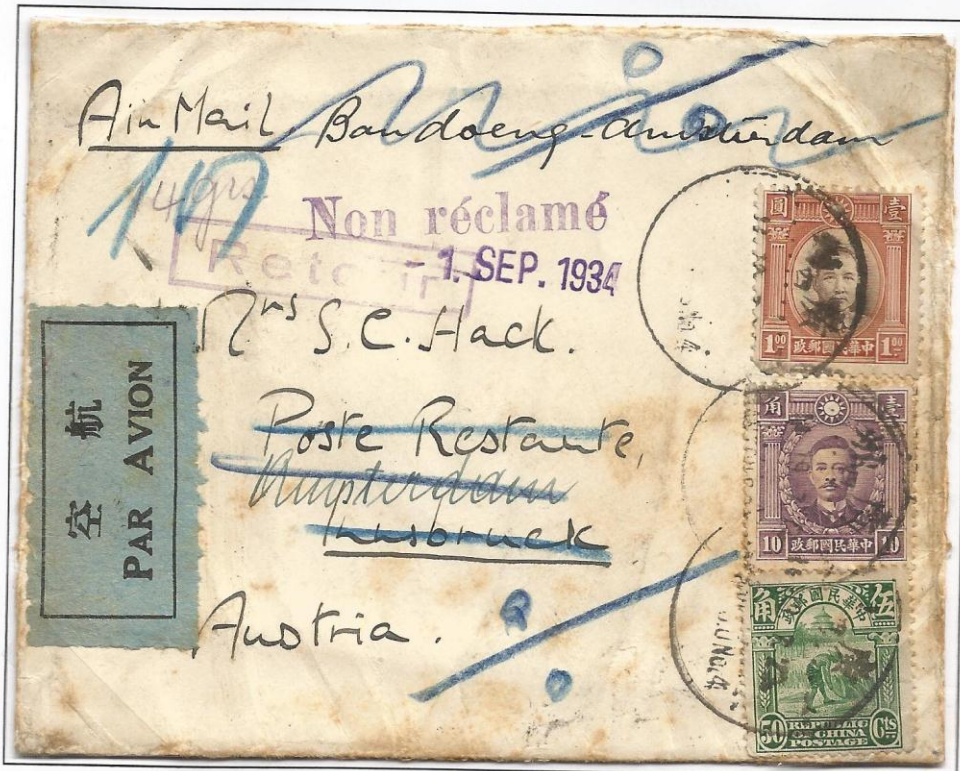 Air Mail Bandoeng-Amsterdam
14 grs.
Non réclamé
Retour
- 1. SEP. 1934
Mrs S.C. Hack.
Poste Restante,
Amsterdam
Innsbruck
Austria.
航空
PAR AVION
圓 壹
1 00 政郵國民華中 1 00
角 壹
10 政郵國民華中 10
政郵國民華中
角 伍
50 REPUBLIC OF CHINA POSTAGE Cts